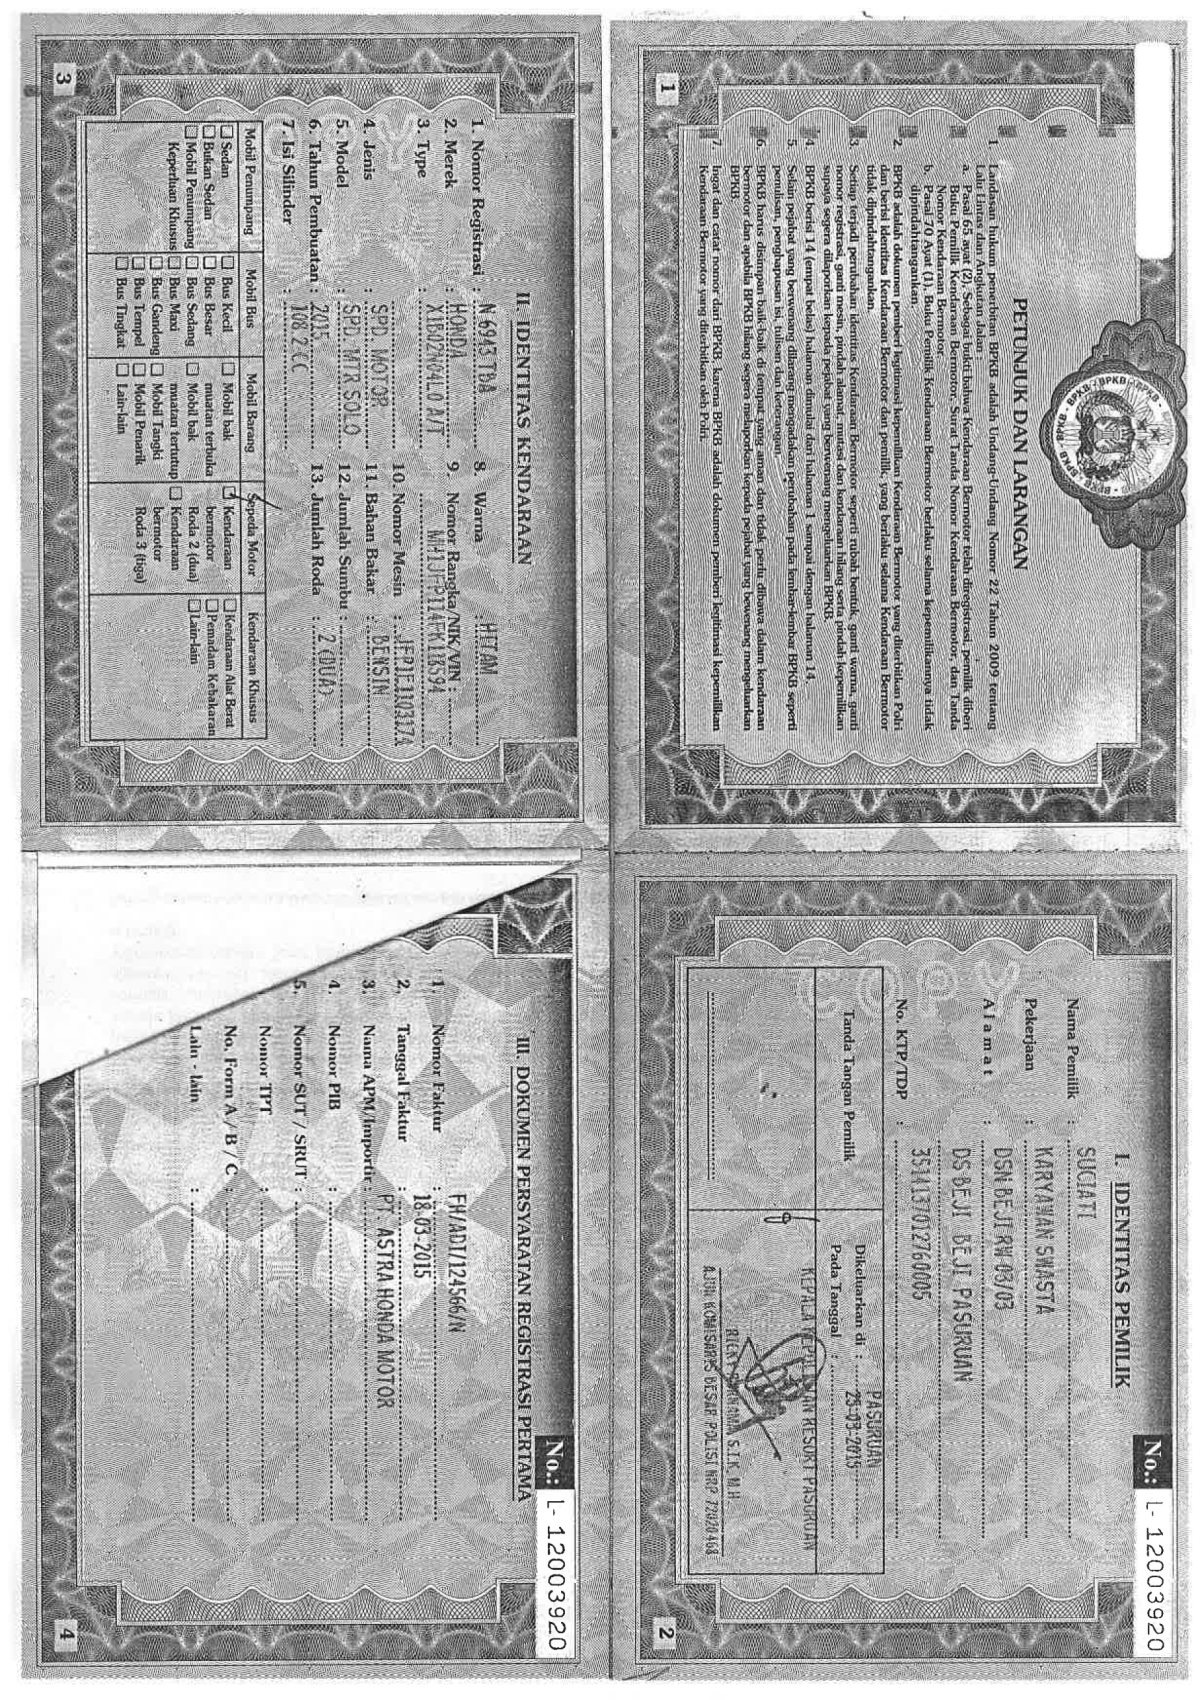 BPKB - BPKB - BPKB - BPKB
PETUNJUK DAN LARANGAN
1 Landasan hukum penerbitan BPKB adalah Undang-Undang Nomor 22 Tahun 2009 tentang
Lalu Lintas dan Angkutan Jalan.
a. Pasal 65 ayat (2), Sebagai bukti bahwa Kendaraan Bermotor telah diregistrasi, pemilik diberi
Buku Pemilik Kendaraan Bermotor, Surat Tanda Nomor Kendaraan Bermotor, dan Tanda
Nomor Kendaraan Bermotor.
b. Pasal 70 Ayat (1), Buku Pemilik Kendaraan Bermotor berlaku selama kepemilikannya tidak
dipindahtangankan.
2 BPKB adalah dokumen pemberi legitimasi kepemilikan Kendaraan Bermotor yang diterbitkan Polri
dan berisi identitas Kendaraan Bermotor dan pemilik, yang berlaku selama Kendaraan Bermotor
tidak dipindahtangankan.
3. Setiap terjadi perubahan identitas Kendaraan Bermotor seperti rubah bentuk, ganti warna, ganti
nomor registrasi, ganti mesin, pindah alamat, mutasi dan kendaraan hilang serta pindah kepemilikan
supaya segera dilaporkan kepada pejabat yang berwenang mengeluarkan BPKB.
4. BPKB berisi 14 (empat belas) halaman dimulai dari halaman 1 sampai dengan halaman 14.
5. Selain pejabat yang berwenang dilarang mengadakan perubahan pada lembar-lembar BPKB seperti
penulisan, penghapusan isi, tulisan dan keterangan.
6. BPKB harus disimpan baik-baik di tempat yang aman dan tidak perlu dibawa dalam kendaraan
bermotor dan apabila BPKB hilang segera melaporkan kepada pejabat yang berwenang mengeluarkan
BPKB
7. Ingat dan catat nomor dari BPKB, karena BPKB adalah dokumen pemberi legitimasi kepemilikan
Kendaraan Bermotor yang diterbitkan oleh Polri.
1
No.: L- 12003920
I. IDENTITAS PEMILIK
Nama Pemilik : SUCIATI
Pekerjaan : KARYAWAN SWASTA
A l a m a t : DSN BEJI RW 03/03
DS BEJI BEJI PASURUAN
No. KTP/TDP : 3514137012760005
Tanda Tangan Pemilik
Dikeluarkan di : PASURUAN
Pada Tanggal : 25-03-2015
KEPALA KEPOLISIAN RESORT PASURUAN
S.I.K, M.H
AJUN KOMISARIS BESAR POLISI NRP 72020468
2
II. IDENTITAS KENDARAAN
1. Nomor Registrasi : N 6943 TBA
2. Merek : HONDA
3. Type : X1B02N04L0 A/T
4. Jenis : SPD MOTOR
5. Model : SPD MTR SOLO
6. Tahun Pembuatan : 2015
7. Isi Silinder : 108,2 CC
8. Warna : HITAM
9. Nomor Rangka/NIK/VIN :
MH1JFP114FK118594
10. Nomor Mesin : JFP1E1103174
11. Bahan Bakar : BENSIN
12. Jumlah Sumbu :
13. Jumlah Roda : 2 (DUA)
Mobil Penumpang
Sedan
Bukan Sedan
Mobil Penumpang
Keperluan Khusus
Mobil Bus
Bus Kecil
Bus Besar
Bus Sedang
Bus Maxi
Bus Gandeng
Bus Tempel
Bus Tingkat
Mobil Barang
Mobil bak
muatan terbuka
Mobil bak
muatan tertutup
Mobil Tangki
Mobil Penarik
Lain-lain
Sepeda Motor
Kendaraan
bermotor
Roda 2 (dua)
Kendaraan
bermotor
Roda 3 (tiga)
Kendaraan Khusus
Kendaraan Alat Berat
Pemadam Kebakaran
Lain-lain
3
No.: L- 12003920
III. DOKUMEN PERSYARATAN REGISTRASI PERTAMA
1. Nomor Faktur : FH/ADI/124566/N
2. Tanggal Faktur : 18-03-2015
3. Nama APM/Importir : PT. ASTRA HONDA MOTOR
4. Nomor PIB :
5. Nomor SUT / SRUT :
Nomor TPT :
No. Form A / B / C :
Lain - lain :
4